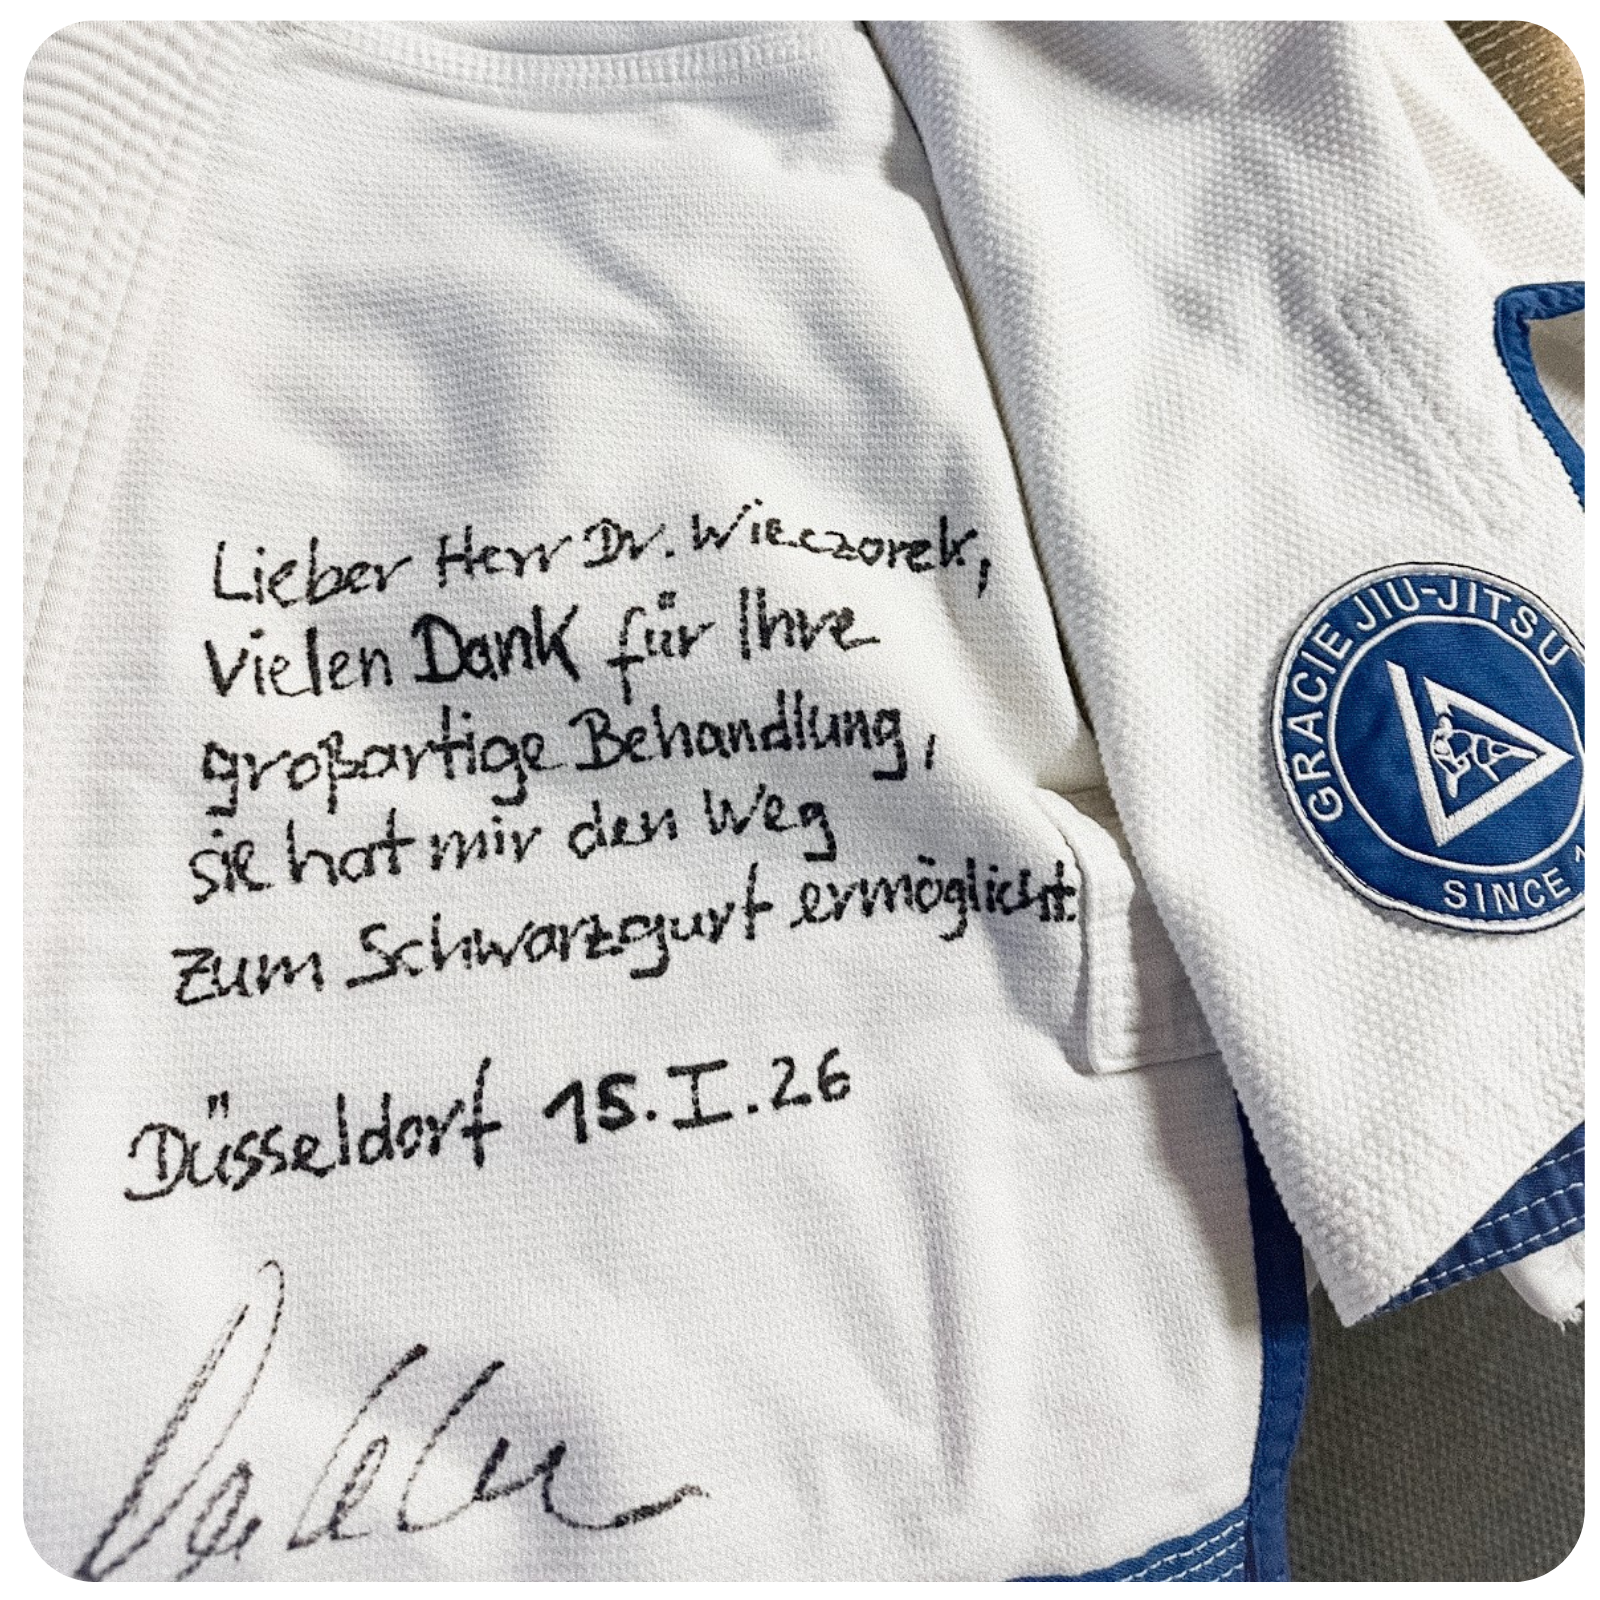 Lieber Herr Dr. Wieczorek,
Vielen Dank für Ihre
großartige Behandlung,
sie hat mir den Weg
zum Schwarzgurt ermöglicht.
Düsseldorf 15.I.26
GRACIE JIU-JITSU
SINCE